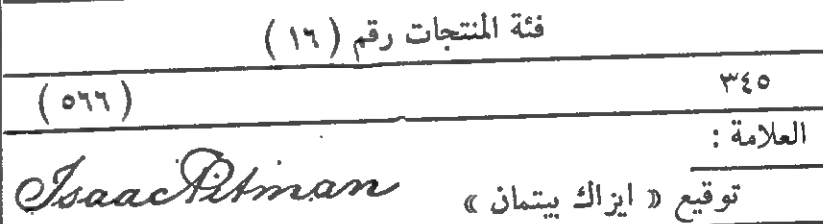 فئة المنتجات رقم ( ١٦ )
٣٤٥ ( ٥٦٦ )
العلامة :
توقيع « ايزاك بيتمان » Isaac Pitman